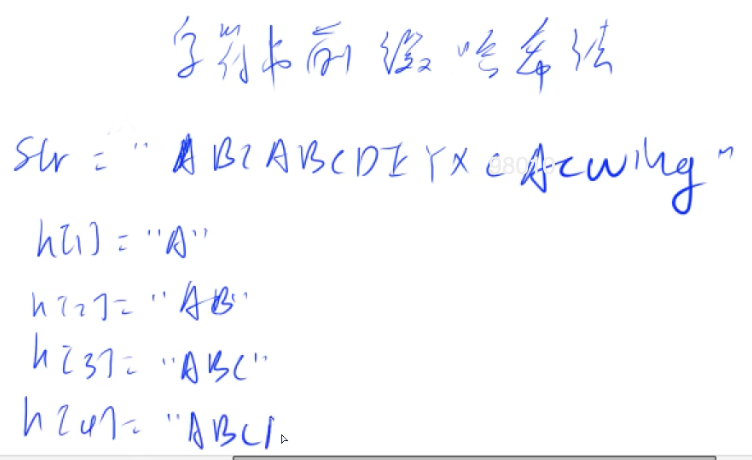 字符串前缀哈希法
str = "ABCABCDEYXCAcwing"
h[1] = "A"
h[2] = "AB"
h[3] = "ABC"
h[4] = "ABC